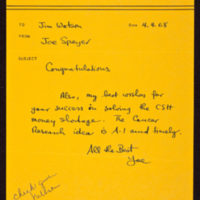 TO Jim Watson DATE 4.4.68
FROM Joe Speyer
SUBJECT
Congratulations
Also, my best wishes for
your success in solving the CSH
money shortage. The Cancer
Research idea is A-1 and timely.
All the Best
Joe